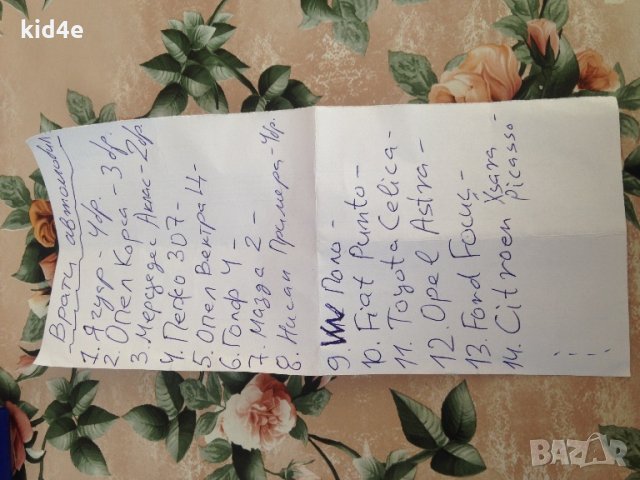 kid4e
Врати автомобил
1. Ягуар - 4бр.
2. Опел Корса - 3бр.
3. Мерцедес Акис - 2бр.
4. Пежо 307 -
5. Опел Вектра Ц -
6. Голф 4 -
7. Мазда 2 -
8. Нисан Примера - 4бр.
9. Поло -
10. Fiat Punto -
11. Toyota Celica -
12. Opel Astra -
13. Ford Focus -
14. Citroen Xsara
picasso -
BAZAR